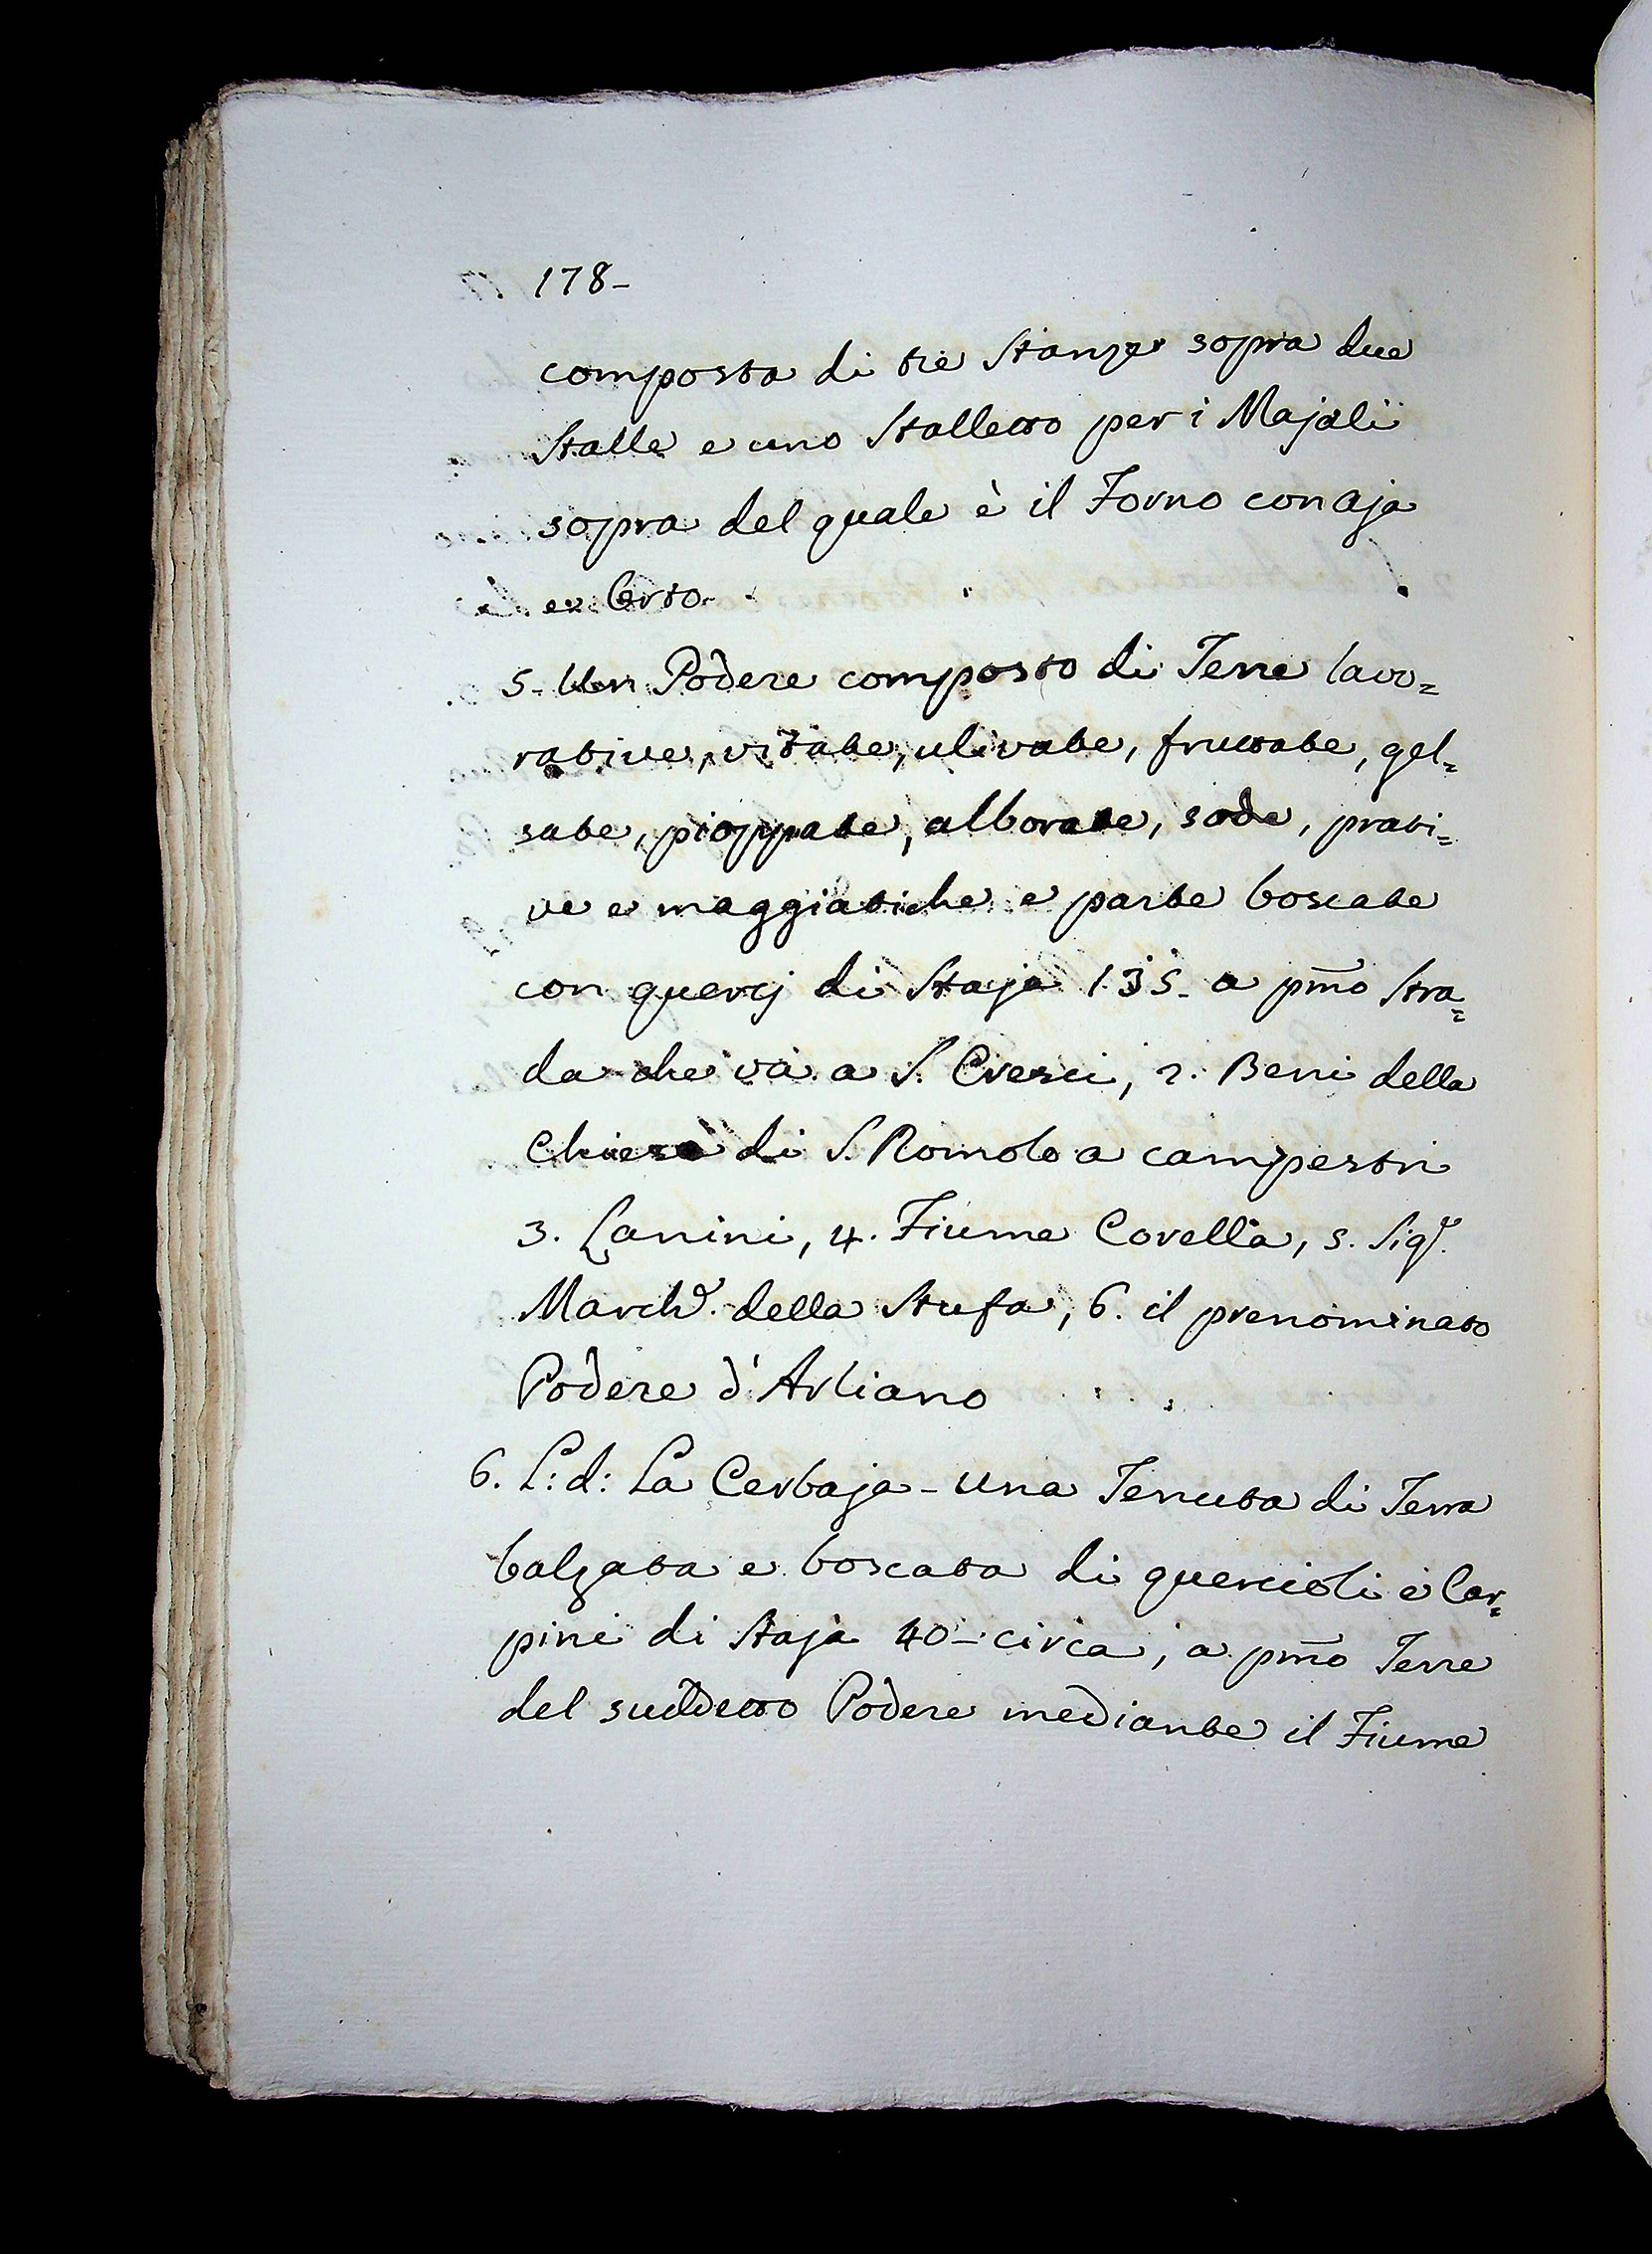 178-
composta di tre Stanze sopra due
Stalle e uno Stalletto per i Majali
sopra del quale è il Forno con aja
e Orto.
5. Un Podere composto di Terre lavo=
rative, vitate, ulivate, fruttate, gel=
sate, pioppate, alborate, sode, prati=
ve e maggiatiche e parte boscate
con quercj di Staja 135- a pm̃o Stra=
da che và a S. Cresci, 2. Beni della
Chiesa di S. Romolo a campestri
3. Lanini, 4. Fiume Corella, 5. Sigr.
Marche. della Stufa, 6. il prenominato
Podere d'Arliano
6. L: d: La Cerbaja - una Tenuta di Terra
balzata e boscata di quercioli e Car=
pini di Staja 40- circa, a pm̃o Terre
del suddetto Podere mediante il Fiume